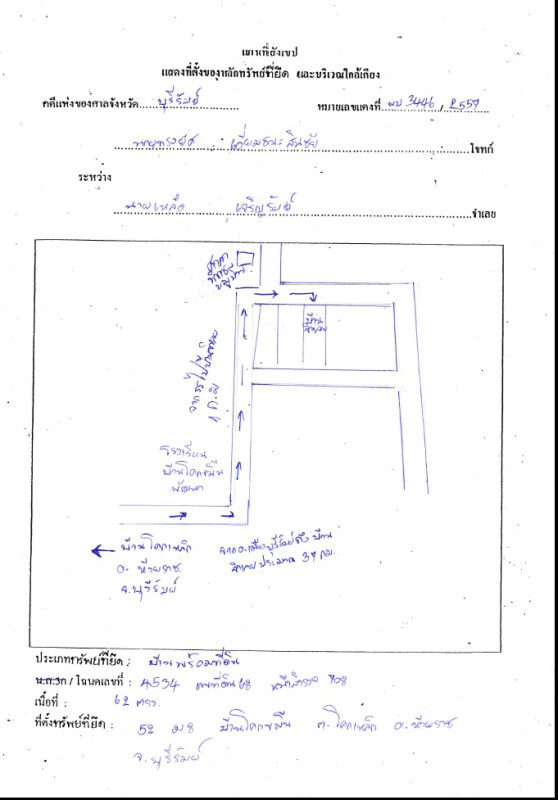 แผนที่สังเขป
แสดงที่ตั้งของทรัพย์ที่ยึด และบริเวณใกล้เคียง
คดีแห่งของศาลจังหวัด บุรีรัมย์ หมายเลขแดงที่ ผบ 3446 / 2557
โจทก์
ระหว่าง
นายเหลือ เจริญรัมย์ จำเลย
ศาลา
บ้าน
จำเลย
1 ก.ม
โรงเรียน
บ้านโคกขมิ้น
พัฒนา
บ้านโคกเหล็ก
อ. ห้วยราช
จ.บุรีรัมย์
จากอ.เมืองบุรีรัมย์ถึง บ้าน
จำเลย ประมาณ 37 กม.
ประเภททรัพย์ที่ยึด : บ้านพร้อมที่ดิน
น.ส.3ก / โฉนดเลขที่ : 4534 เลขที่ดิน 68 หน้าสำรวจ 708
เนื้อที่ : 62 ตรว.
ที่ตั้งทรัพย์ที่ยึด : 52 ม 8 บ้านโคกขมิ้น ต. โคกเหล็ก อ. ห้วยราช
จ. บุรีรัมย์